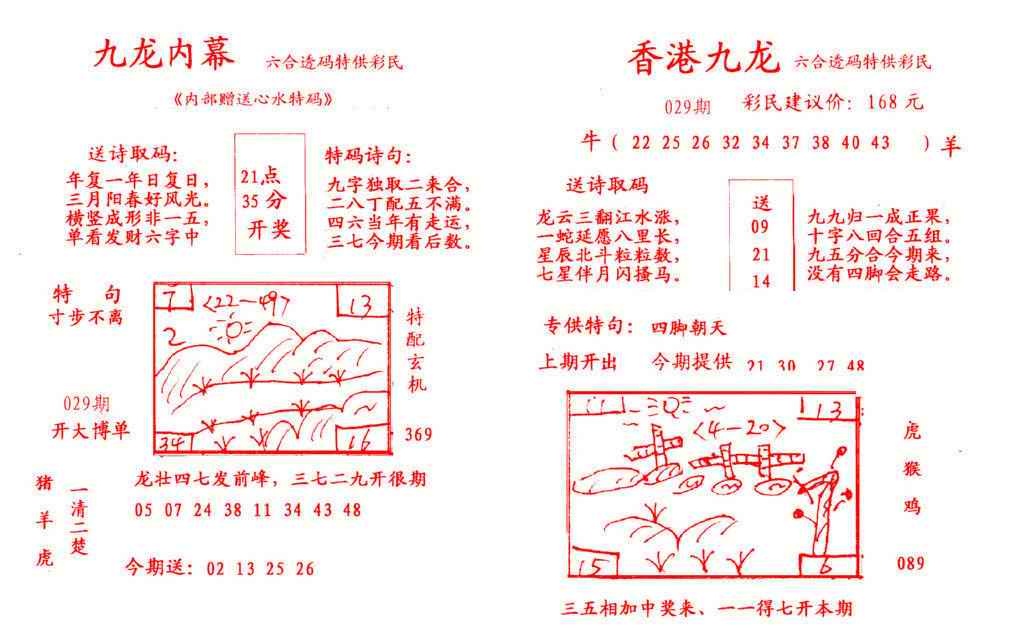 九龙内幕 六合透码特供彩民
《内部赠送心水特码》
送诗取码：
年复一年日复日，
三月阳春好风光。
横竖成形非一五，
单看发财六字中
21点
35分
开奖
特码诗句：
九字独取二来合，
二八丁配五不满。
四六当年有走运，
三七今期看后数。
特 句
寸步不离
029期
开大博单
7
<22-49>
13
2
34
16
特配玄机
369
猪羊虎
一清二楚
龙壮四七发前峰，三七二九开很期
05 07 24 38 11 34 43 48
今期送：02 13 25 26
香港九龙 六合透码特供彩民
029期 彩民建议价：168元
牛（ 22 25 26 32 34 37 38 40 43 ）羊
送诗取码
龙云三翻江水涨，
一蛇延愿八里长，
星辰北斗粒粒数，
七星伴月闪播马。
送
09
21
14
九九归一成正果，
十字八回合五组。
九五分合今期来，
没有四脚会走路。
专供特句：四脚朝天
上期开出 今期提供 21 30 27 48
11
13
<4-20>
15
6
虎
猴
鸡
089
三五相加中奖来、一一得七开本期